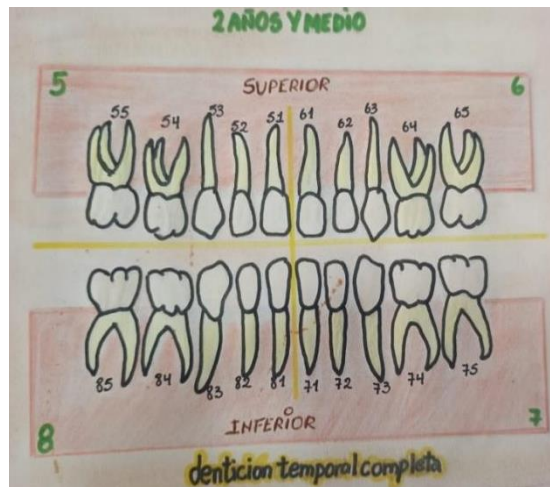 2 AÑOS Y MEDIO
5 SUPERIOR 6
55 54 53 52 51 61 62 63 64 65
85 84 83 82 81 71 72 73 74 75
8 INFERIOR 7
denticion temporal completa